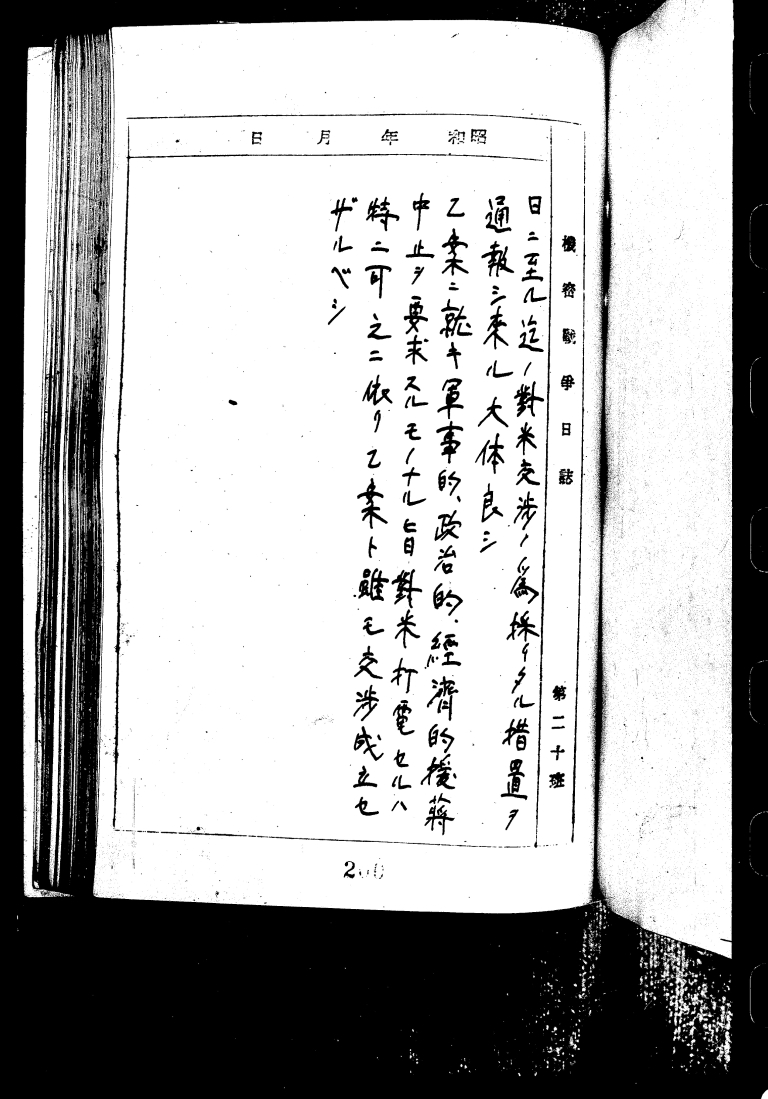 機密戰爭日誌
第二十班
昭和 年 月 日
日ニ至ル迄ノ對米交渉ノ爲採リタル措置ヲ
通報シ来ル大体良シ
乙案ニ就キ軍事的、政治的、經濟的援蔣
中止ヲ要求スルモノナル旨對米打電セルハ
特ニ可之ニ依リ乙案ト雖モ交渉成立セ
ザルベシ